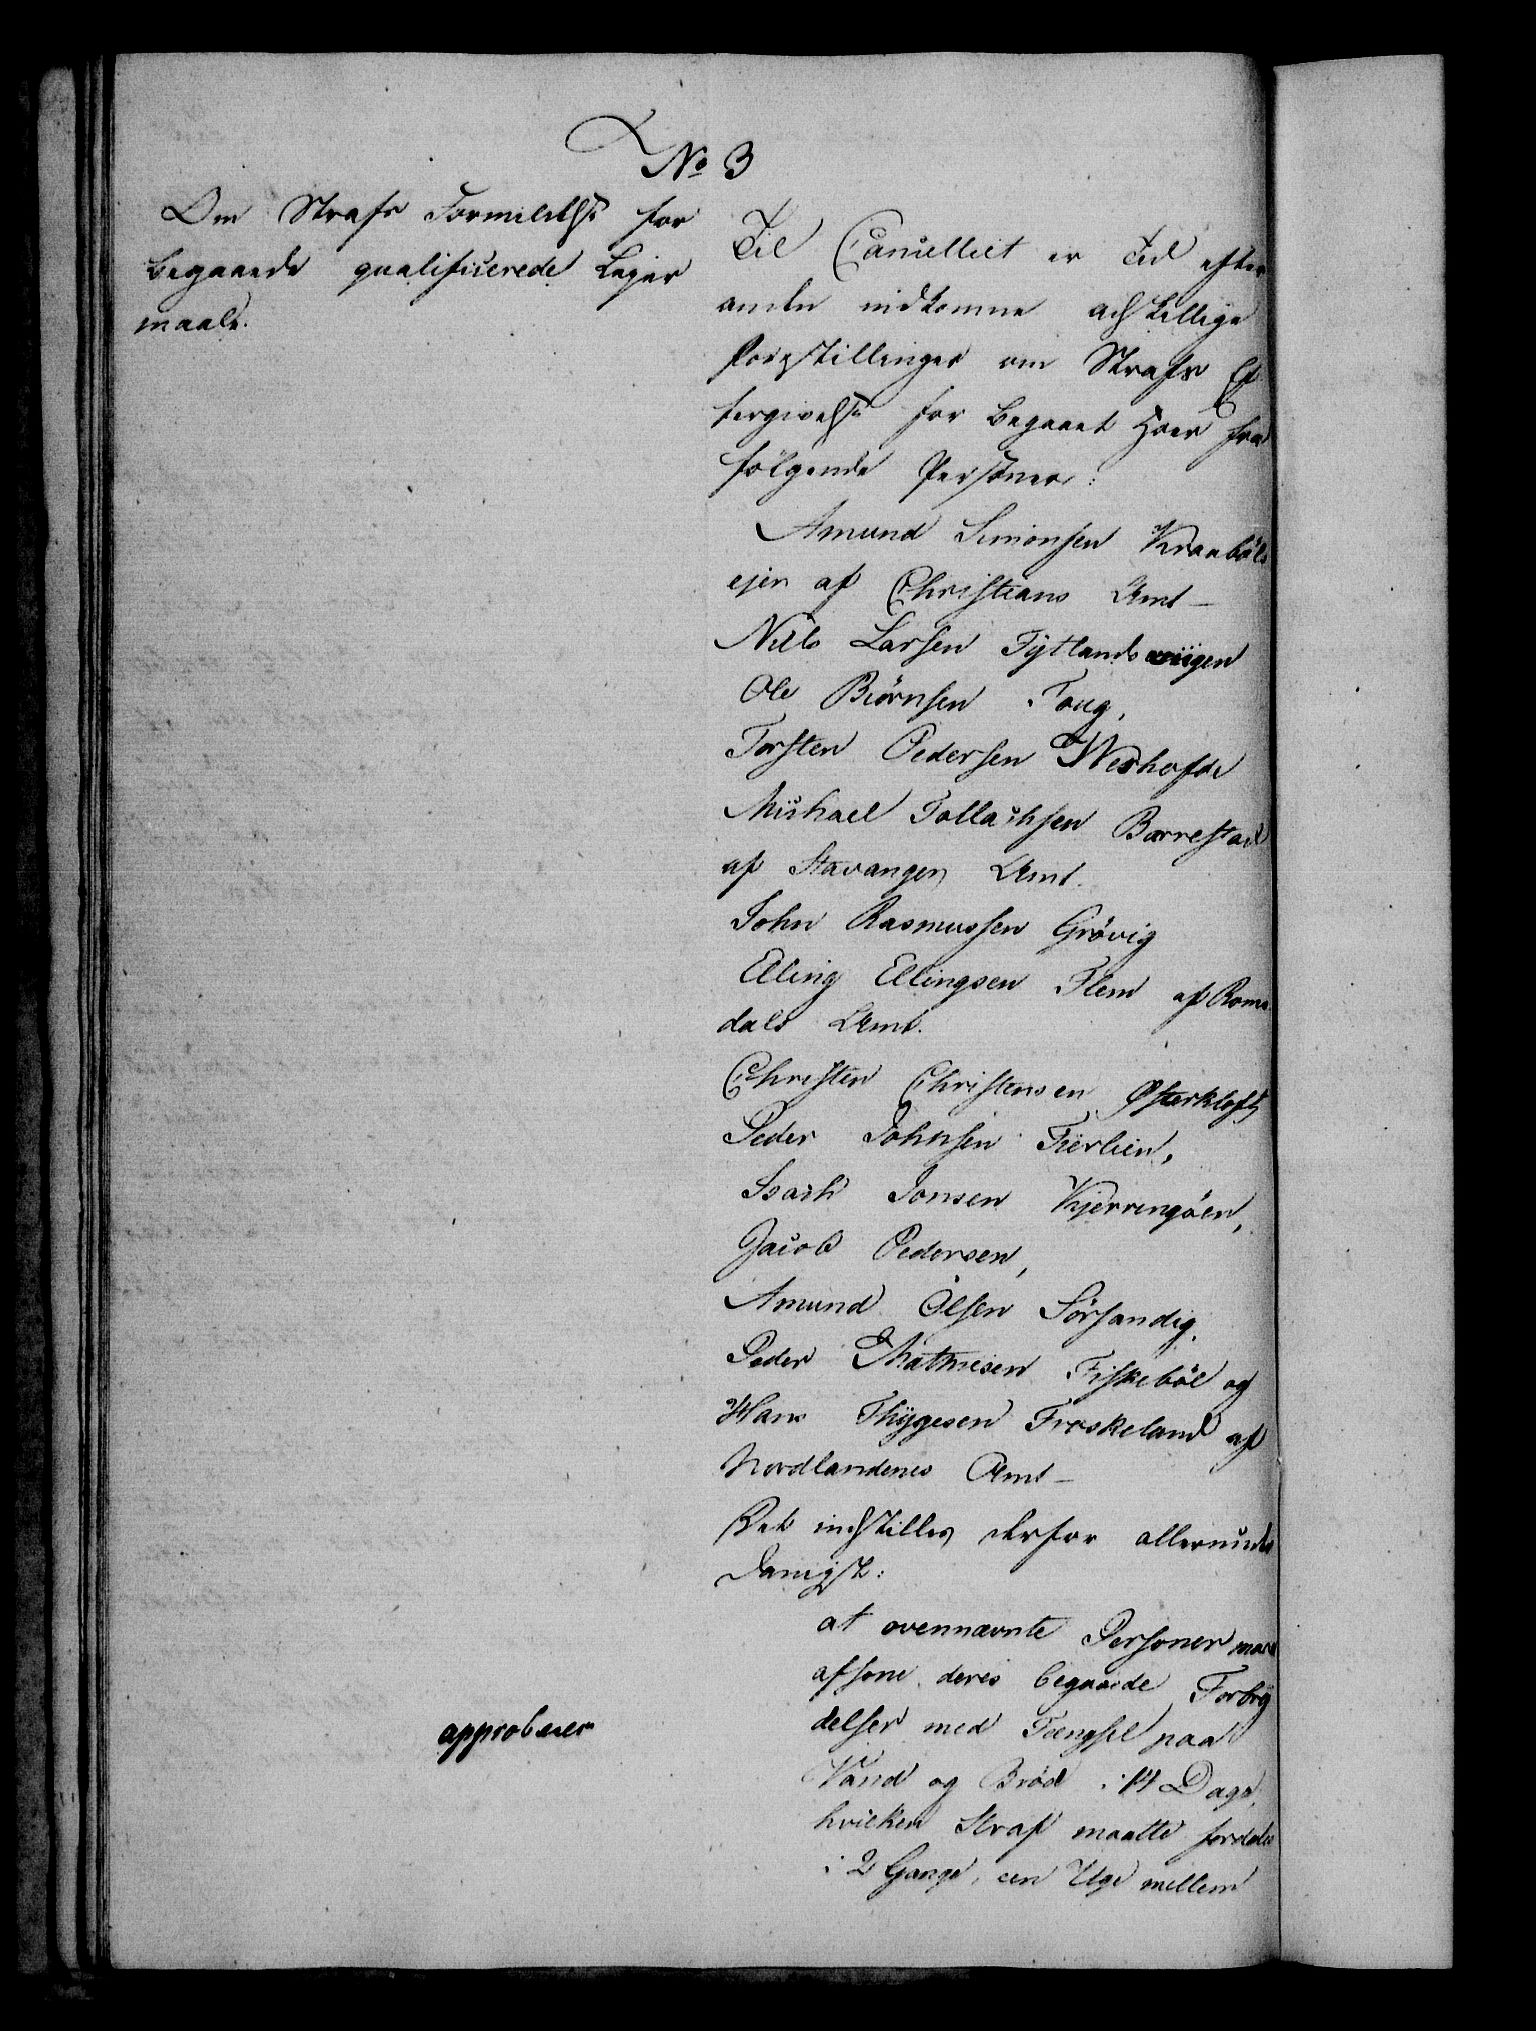 No 3
Om Strafs Formildelse for
begaaede qualificerede Leier
maale.
Til Cancelliet er Tid efter
anden indkomne adskillige
Forestillinger om Strafs Ef
tergivelse for begaaet Hoer fra
følgende Personer:
Amund Simonsen Kraabøls
ejer af Christians Amt –
Niels Larsen Tytlandsviigen
Ole Biörnsen Toug,
Torsten Pedersen
Michael Tollachsen Barrestad
af Stavanger Amt.
John Rasmussen Grövig
Elling Ellingsen Flem af Roms
dals Amt.
Christen Christensen Østerkloft,
Peder Johnsen Fierlien,
Isach Jonsen Kjerringöen,
Jacob Pedersen,
Amund Olsen Sörsandig,
Peder Mathiesen Fiskeböl og
Hans Thygesen Froskeland af
Nordlandenes Amt –
Det indstilles derfor allerunder
danigst:
at ovennævnte Personer maae
afsone deres begaaede Forbry
delser med Fængsel paa
Vand og Bröd i 14 Dage,
hvilken Straf maatte fordeles
i 2 Gange, een Uge mellem
approberer